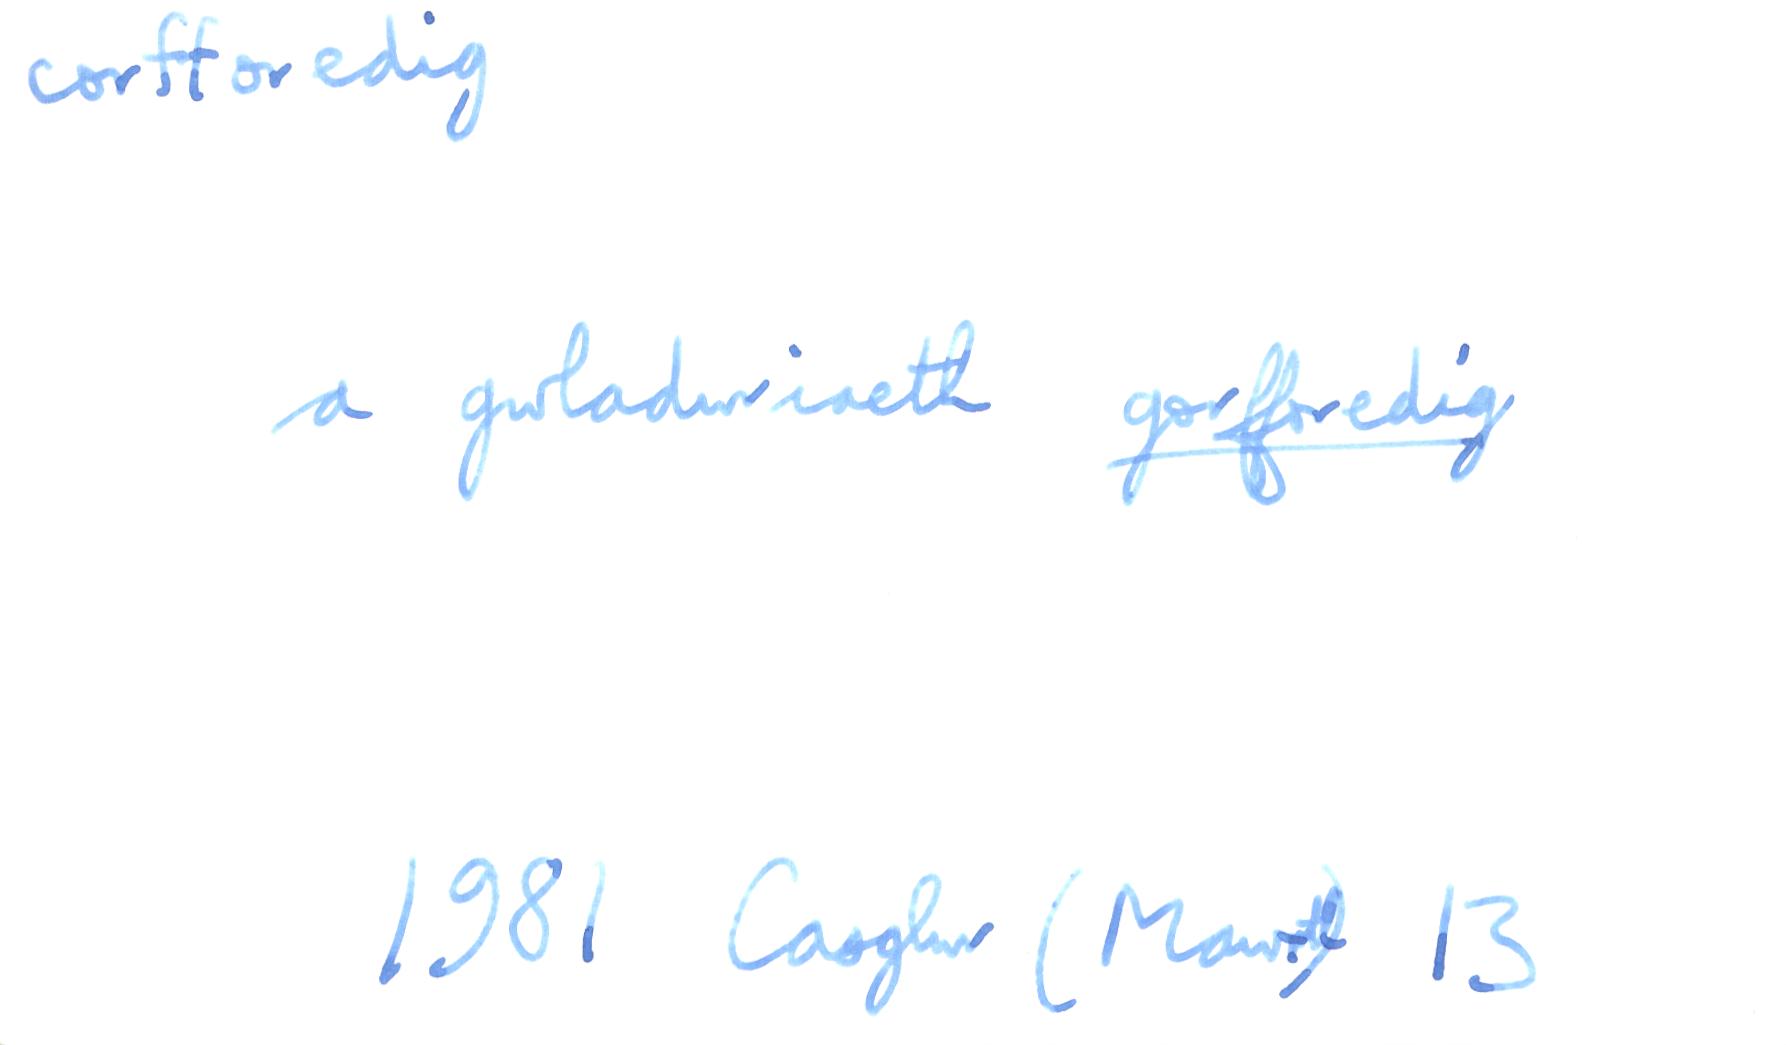 corfforedig
a gwladwriaeth gorfforedig
1981 Casglwr (Mawrth) 13